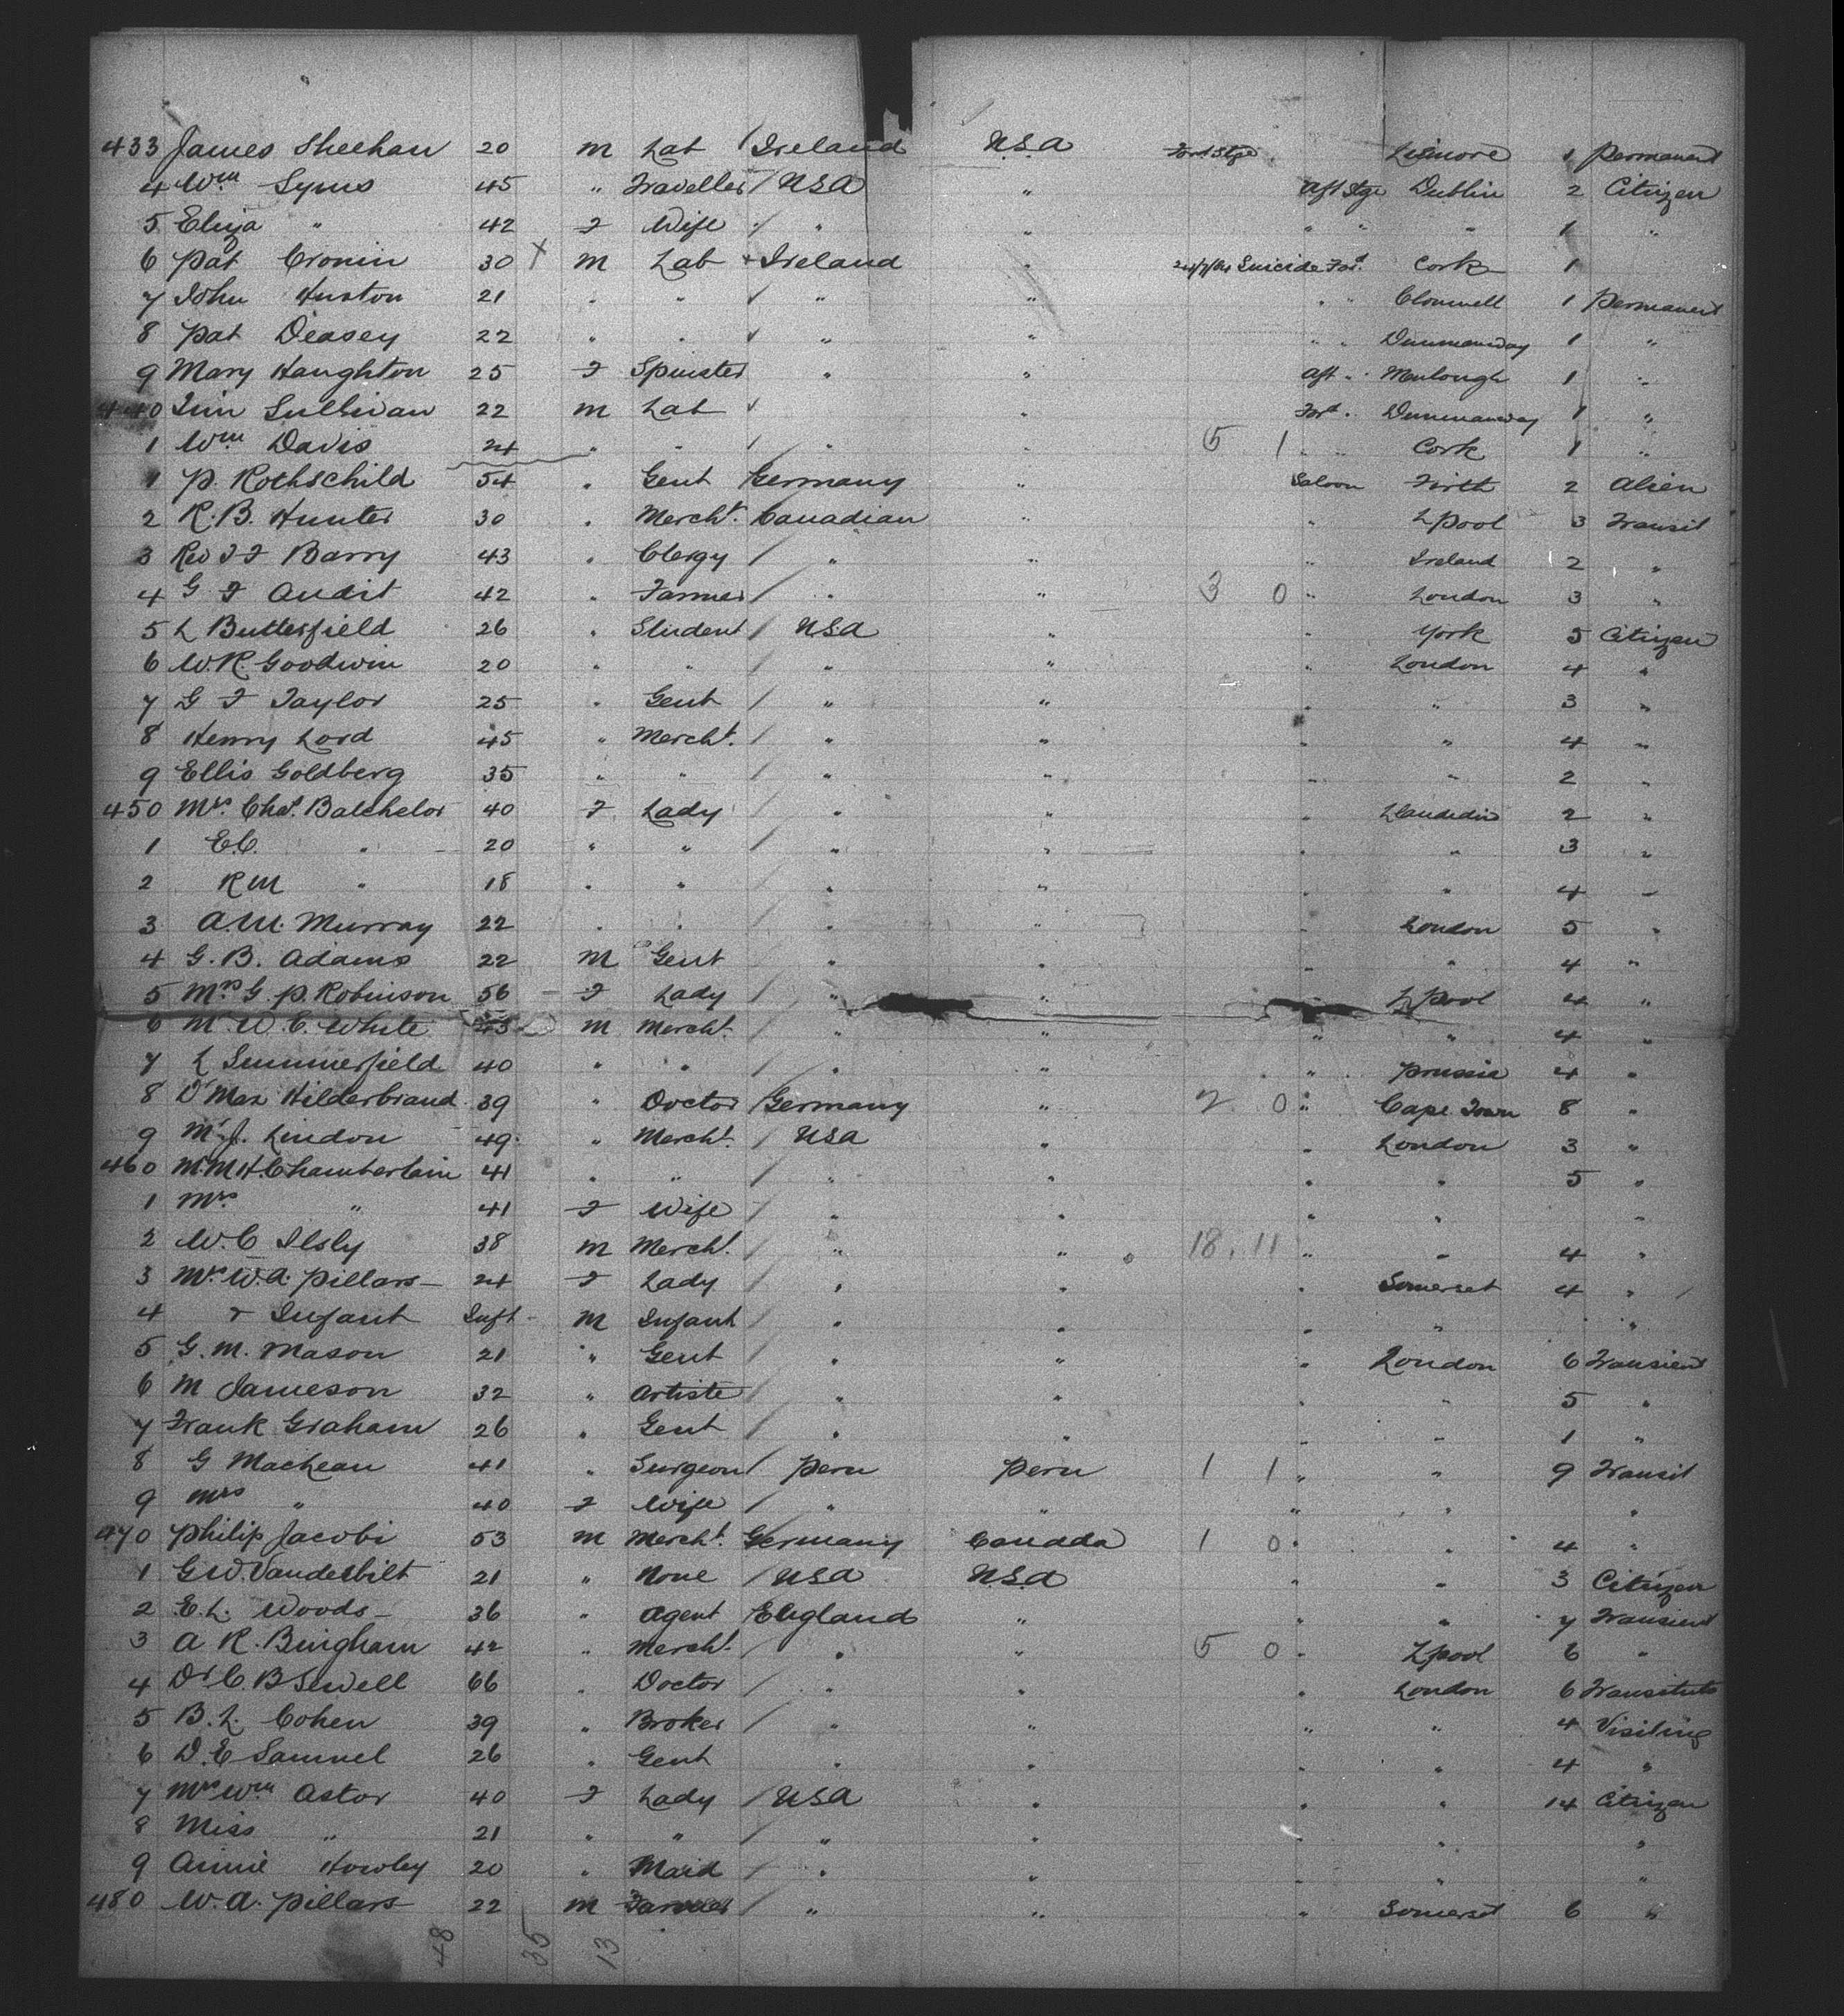 433 James Sheehan 20 m Lab / Ireland U.S.A Ford Stge Lismore 1 Permanent
4 Wm Syms 45 " Traveller / USA " Aft Stge Dublin 2 Citizen
5 Eliza " 42 F Wife / " " " " " 1 "
6 Pat Cronin 30 X m Lab Ireland " Suicide Ford Cork 1
7 John Huston 21 " " ✓ " " " " Clonmell 1 Permanent
8 Pat Deasey 22 " " ✓ " " " " Dunmanway 1 "
9 Mary Haughton 25 F Spinster " " Aft " 1 "
440 Tim Sullivan 22 m Lab ✓ " Ford " Dunmanway 1 "
1 Wm Davis 24 " " / " " 5 1 " " Cork 1 "
1 P. Rothschild 54 " Gent Germany " Saloon Firth 2 Alien
2 R. B. Hunter 30 " Mercht. Canadian " " L'pool 3 Transit
3 Rev J F Barry 43 " Clergy / " " " Ireland 2 "
4 G F Audit 42 " Farmer / " " 3 0 " London 3 "
5 L Butterfield 26 " Student / USA " " York 5 Citizen
6 W. R. Goodwin 20 " " / " " " London 4 "
7 G F Taylor 25 " Gent / " " " " 3 "
8 Henry Lord 45 " Mercht. / " " " " 4 "
9 Ellis Goldberg 35 " " / " " " " 2 "
450 Mrs Chas. Batchelor 40 F Lady / " " " 2 "
1 E.C. " 20 " " / " " " " 3 "
2 R M " 18 " " / " " " " 4 "
3 A. M. Murray 22 " " / " " " London 5 "
4 G. B. Adams 22 m Gent / " " " " 4 "
5 Mrs G. P. Robinson 56 F Lady / " " " L'pool 4 "
6 Mr W. C. White m Mercht. / " " " " 4 "
7 L Summerfield 40 " " / " " " Prussia 4 "
8 Dr Max Hilderbrand 39 " Doctor / Germany " 2 0 " Cape Town 8 "
9 Mr J. Lindon 49 " Mercht. / USA " " London 3 "
460 Mr M H. Chamberlain 41 " " / " " " " 5 "
1 Mrs " 41 F Wife / " " " " "
2 W. C Ilsly 38 m Mercht. / " " 18. 11 " " 4 "
3 Mrs W. A. Pillars 24 F Lady / " " Somerset 4 "
4 & Infant Inft m Infant / " " " " "
5 G. M. Mason 21 " Gent / " " " London 6 Transient
6 M Jameson 32 " Artiste / " " " " 5 "
7 Frank Graham 26 " Gent / " " " " 1 "
8 G MacLean 41 " Surgeon / Peru Peru 1 1 " " 9 Transit
9 Mrs " 40 F Wife / " " " " "
470 Philip Jacobi 53 m Mercht. Germany Canada 1 0 " " 4 "
1 G W. Vanderbilt 21 " None / USA U.S.A " " 3 Citizen
2 E. L. Woods 36 " Agent England " " " 7 Transient
3 A R. Bingham 42 " Mercht. " " 5 0 " L'pool 6 "
4 Dr C. B Sewell 66 " Doctor / " " " London 6
5 B. L. Cohen 39 " Broker / " " " " 4 Visiting
6 D. E Samuel 26 " Gent " " " " 4 "
7 Mrs Wm Astor 40 F Lady / USA " " " 14 Citizen
8 Miss " 21 " " / " " " " "
9 Annie Howley 20 " Maid / " " " " "
480 W. A. Pillars 22 m Farmer / " " " Somerset 6 "
48 35 13